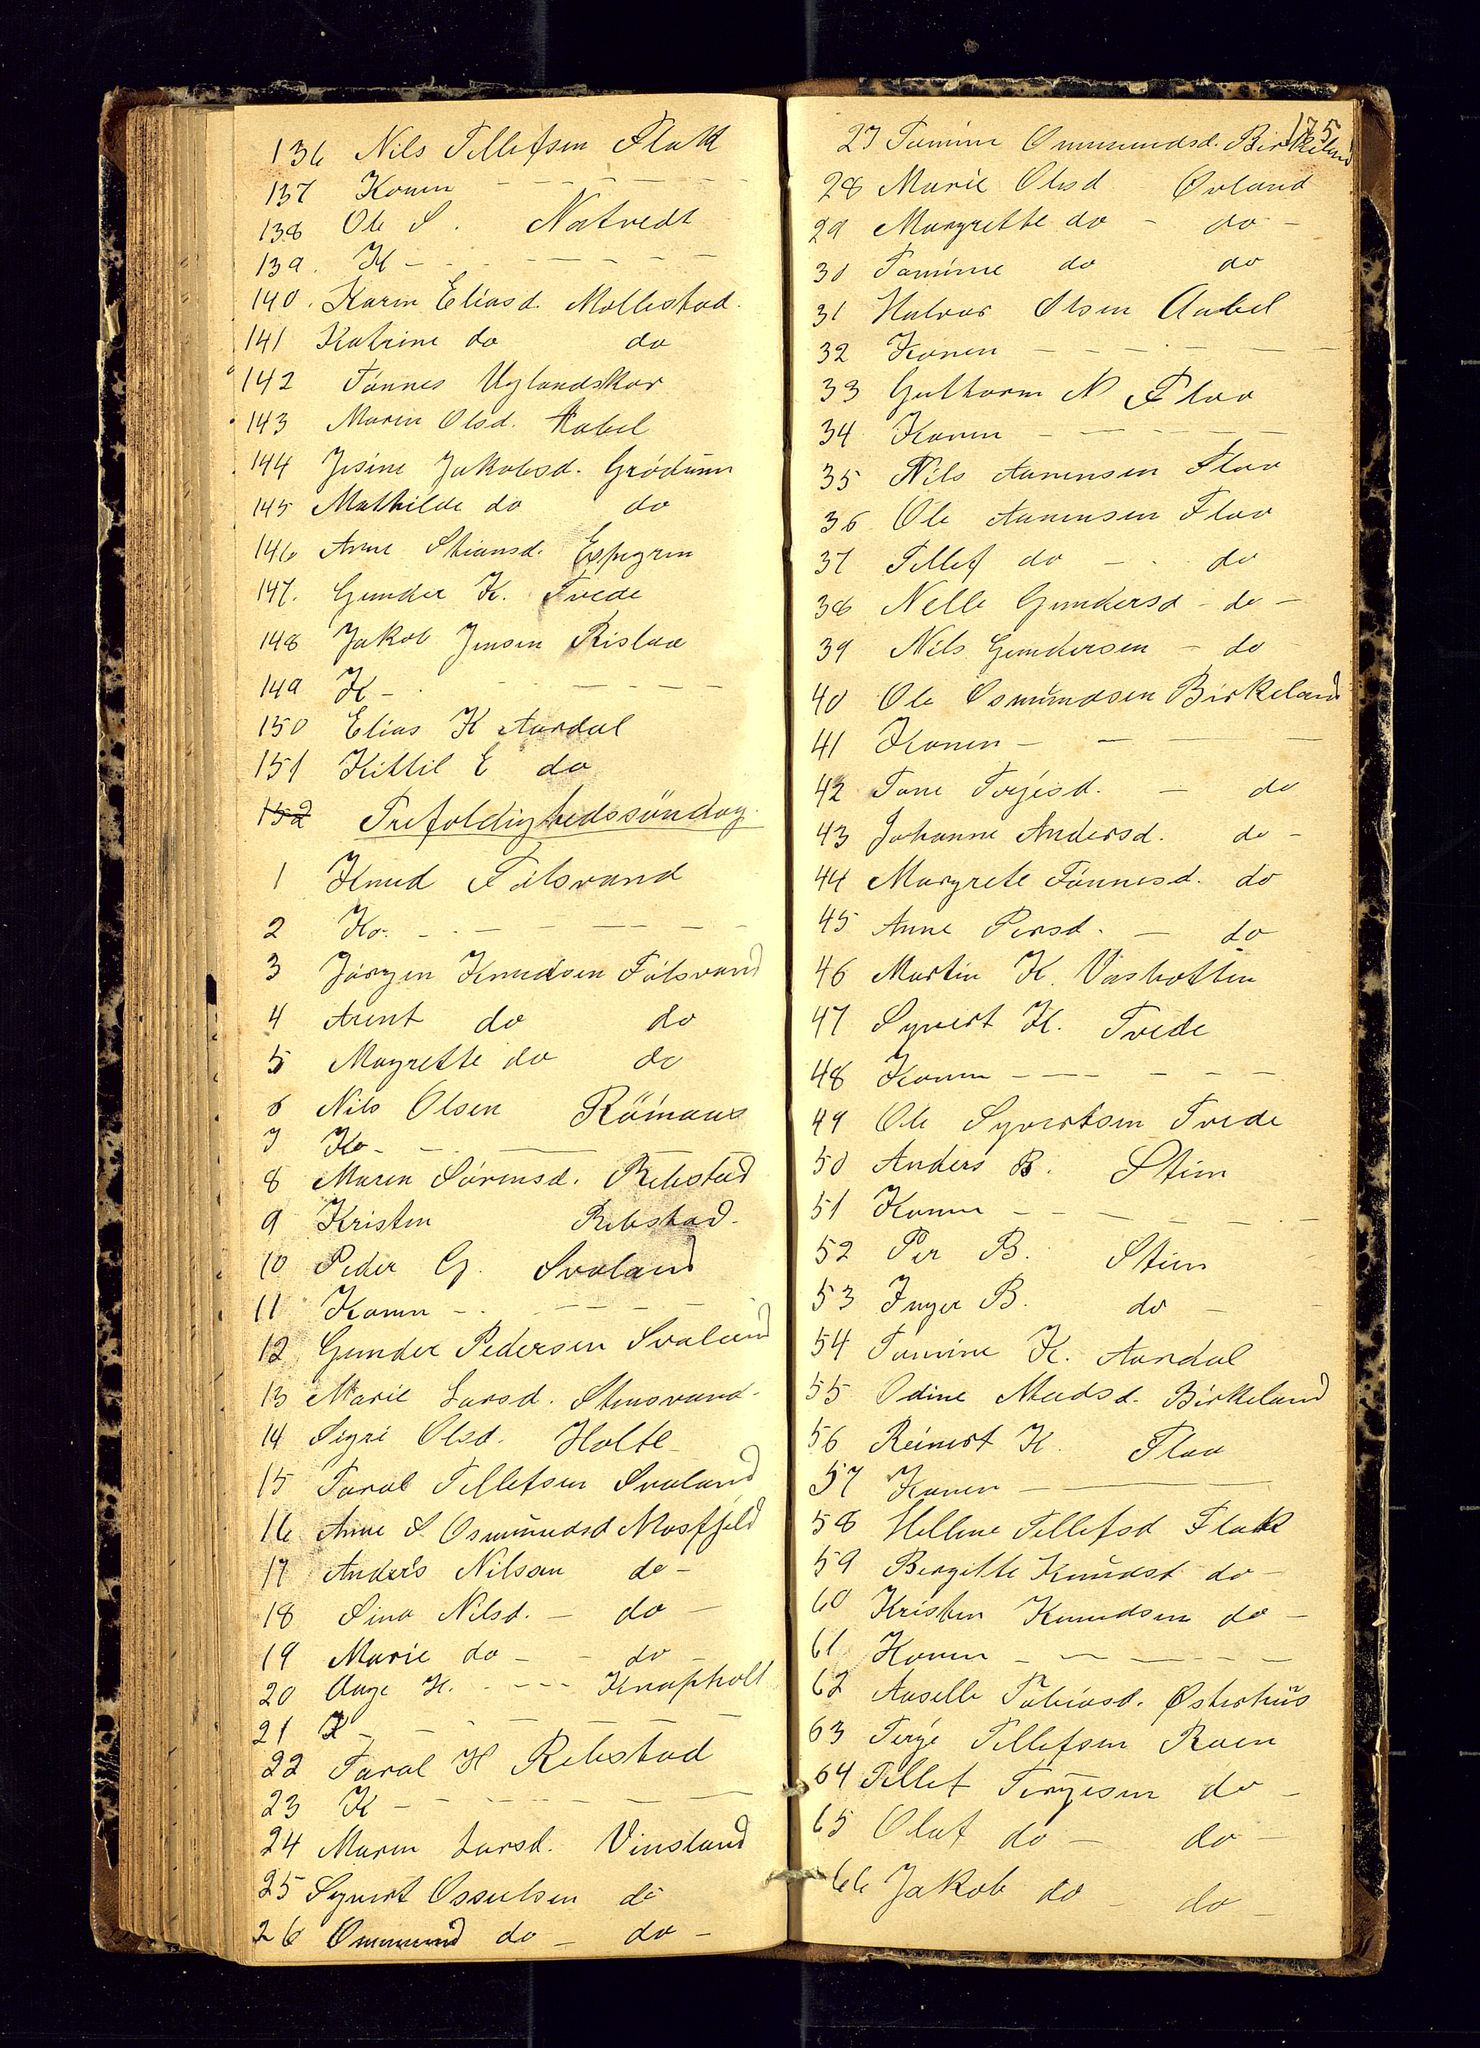 136 Nils Tellefsen Flak
137 Konen - - - - - -
138 Ole S. Natvedt
139. K - - - - - - -
140. Karen Eliasd. Mollestad.
141 Katrine do do
142 Tønnes Uglandskar
143 Maren Olsd. Aabel
144 Jesine Jakobsd. Grødum
145 Mathilde do do
146 Anne Stiansd. Espegren
147. Gunder K. Tvede
148 Jakob Jensen Rislaa
149 K - - - - - -
150 Elias K Aardal
151 Kittil E do
152 Trefoldighedssöndag.
1 Knud Følsvand
2 Ko. - - - - - - -
3 Jørgen Knudsen Følsvand
4 Arent do do
5 Magrette do do
6 Nils Olsen Römaus
7 Ko - - - -
8 Maren Sørensd. Rebstad
9 Kristen Rebstad.
10 Peder G. Svaland
11 Konen - - - - -
12 Gunder Pedersen Svaland
13 Marie Larsd. Stensvand -
14 Sigri Olsd. Holte
15 Taral Tellefsen Svaland
16 Anne S. Osmundsd Mosfjeld
17 Anders Nilsen do -
18 Sina Nilsd. - do -
19 Marie do - - do -
20 Aage K. - - - - Knapholt
21 K - - - - - - -
22 Taral H Rebstad
23 K - - - - - - -
24 Maren Larsd. Vinsland
25 Syvert Osuulsen do
26 Ommund do - do -
175
27 Tomine Ommundsd. Birkeland
28 Marie Olsd Øvland
29 Margrette do - do -
30 Tomine do do
31 Halvor Olsen Aabel
32 Konen - - - - - - -
33 Guthorm N Flaa
34 Konen - - - - - -
35 Nils Aanensen Flaa
36 Ole Aanensen Flaa
37 Tellef do - - do
38 Nelle Gundersd - do -
39 Nils Gundersen - do
40 Ole Osmundsen Birkeland
41 Konen - - - -
42 Tone Terjesd. - do
43 Johanne Andersd. do -
44 Margrete Tønnesd. do
45 Anne Persd. - do
46 Martin K. Vasbotten
47 Syvert K. Tvede
48 Konen - - - - - -
49 Ole Syvertsen Tvede
50 Anders B. Stien
51 Konen - - - - - - -
52 Per B. Stien
53 Inger B. do - -
54 Tomine K. Aardal
55 Odine Madsd. Birkeland
56 Reinert K. Flaa
57 Konen -
58 Hellene Tellefsd Flak
59 Bergitte Knudsd do -
60 Kristen Knudsen do -
61 Konen - - - - - -
62 Aaselle Tobiasd. Østerhus
63 Terje Tellefsen Raen
64 Tellef Terjesen do -
65 Olaf do - do -
66 Jakob do - do -